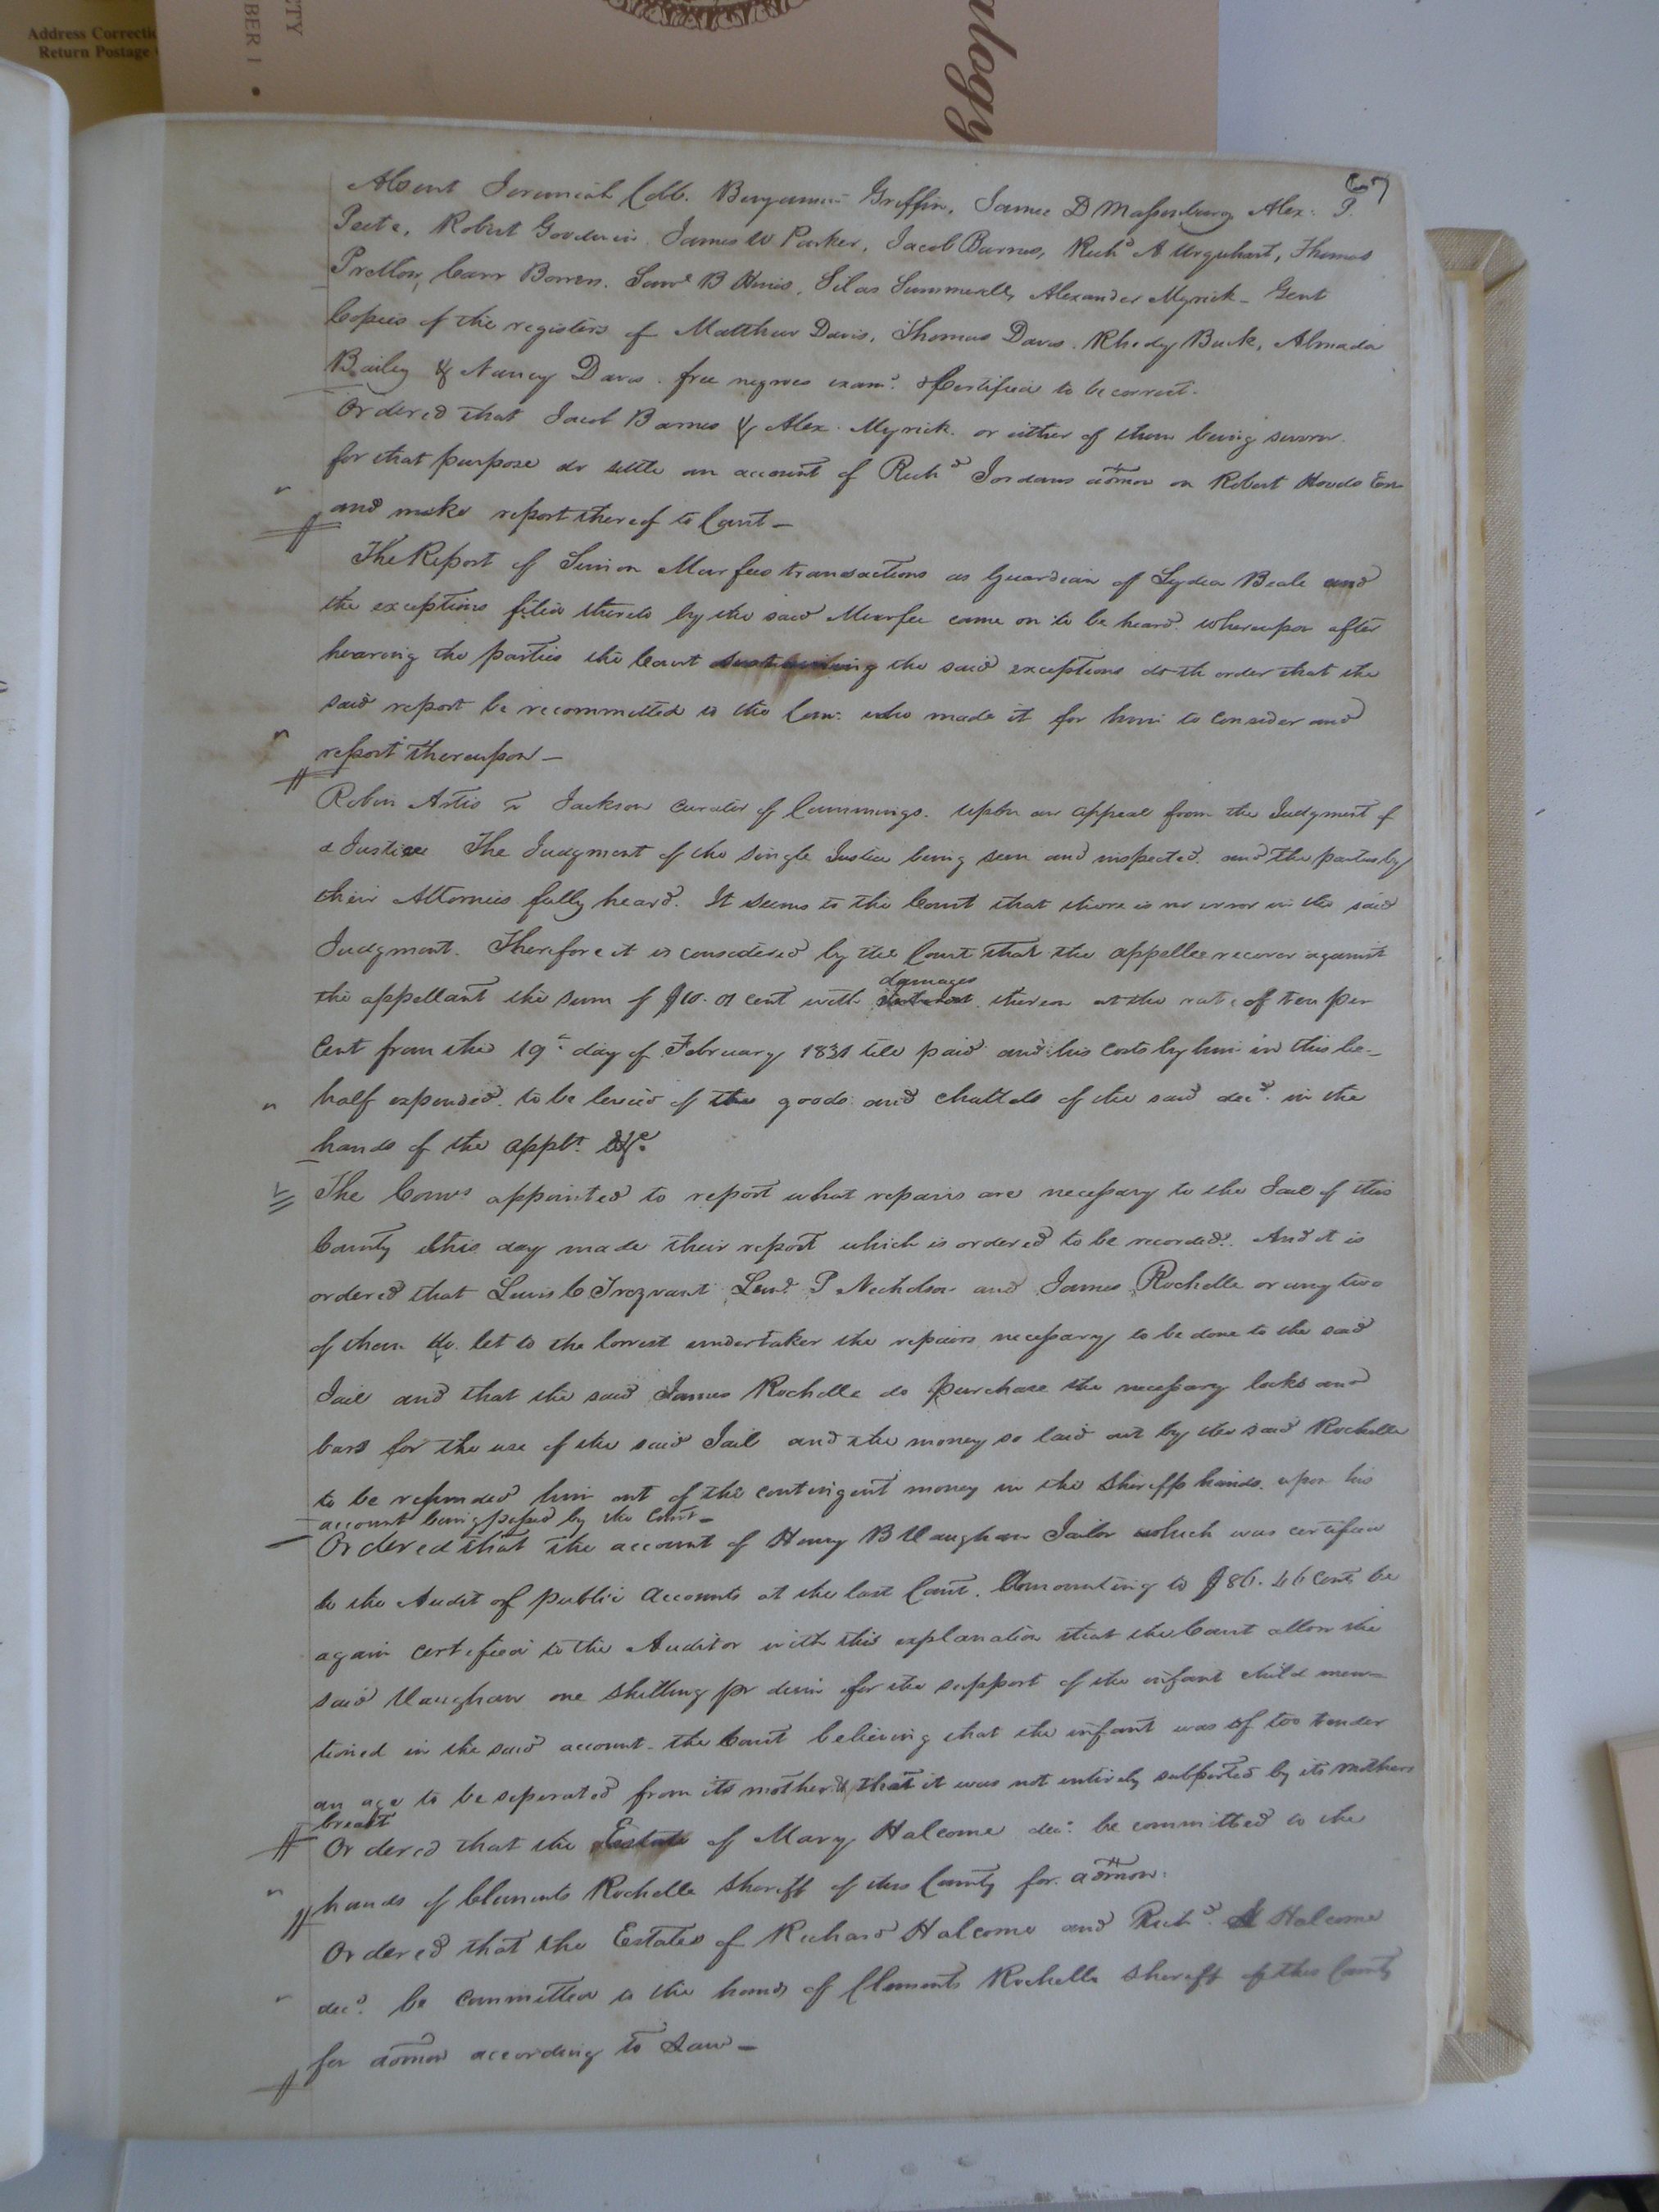 Address Correctio
Return Postage
ETY
BER 1 •
ulogy
67
Absent Jeremiah Cobb. Benjamin Griffin, James D Massenburg Alex: P.
Peete, Robert Goodwin, James W Parker, Jacob Barnes, Richd A Urquhart, Thomas
Pretlow, Carr Bowers. Saml B Hines, Silas Summerell, Alexander Myrick - Gent
Copies of the registers of Matthew Davis, Thomas Davis. Rhody Buck, Almada
Bailey & Nancy Davis. free negroes examd. & Certified to be correct.
Ordered that Jacob Barnes & Alex. Myrick. or either of them being sworn
for that purpose do settle an account of Richd Jordans admon on Robert Hoods Est
and make report thereof to Court -
The Report of Simon Murfees transactions as Guardian of Lydia Beale and
the exceptions filed thereto by the said Murfee came on to be heard. whereupon after
hearing the parties the Court sustaining the said exceptions doth order that the
said report be recommitted to the Comr who made it for him to consider and
report thereupon -
Robin Artis vs Jackson curator of Cummings. upon an appeal from the Judgment of
a Justice The Judgment of the single Justice being seen and inspected. and the parties by
their Attornies fully heard. It seems to the Court that there is no error in the said
Judgment. Therefore it is considered by the Court that the appellee recover against
damages
the appellant the sum of $10. 01 cent with interest thereon at the rate of ten per
Cent from the 19th day of February 1831 till paid and his costs by him in this be-
half expended. to be levied of the goods and chattels of the said decd. in the
hands of the applt. &c.
The Comrs appointed to report what repairs are necessary to the Jail of this
County this day made their report which is ordered to be recorded. And it is
ordered that Lewis C Trezvant P Nicholson and James Rochelle or any two
of them do. let to the lowest undertaker the repairs necessary to be done to the said
Jail and that the said James Rochelle do purchase the necessary locks and
bars for the use of the said Jail and the money so laid out by the said Rochelle
to be refunded him out of the contingent money in the Sheriffs hands. upon his
account being passed by the Court -
Ordered that the account of Henry B Vaughan Jailor which was certified
to the Audit of public Accounts at the last Court. Amounting to $86. 46 Cents be
again certified to the Auditor with this explanation that the Court allow the
said Vaughan one shilling pr diem for the support of the infant child men-
tioned in the said account - the Court believing that the infant was of too tender
an age to be seperated from its mother & that it was not entirely supported by its mothers
breast
Ordered that the Estate of Mary Halcome decd. be committed to the
hands of Clements Rochelle Sheriff of this County for admon.
Ordered that the Estates of Richard Halcome and Richd. Halcome
decd. be committed to the hands of Clements Rochelle Sheriff of this County
for admon according to Law -